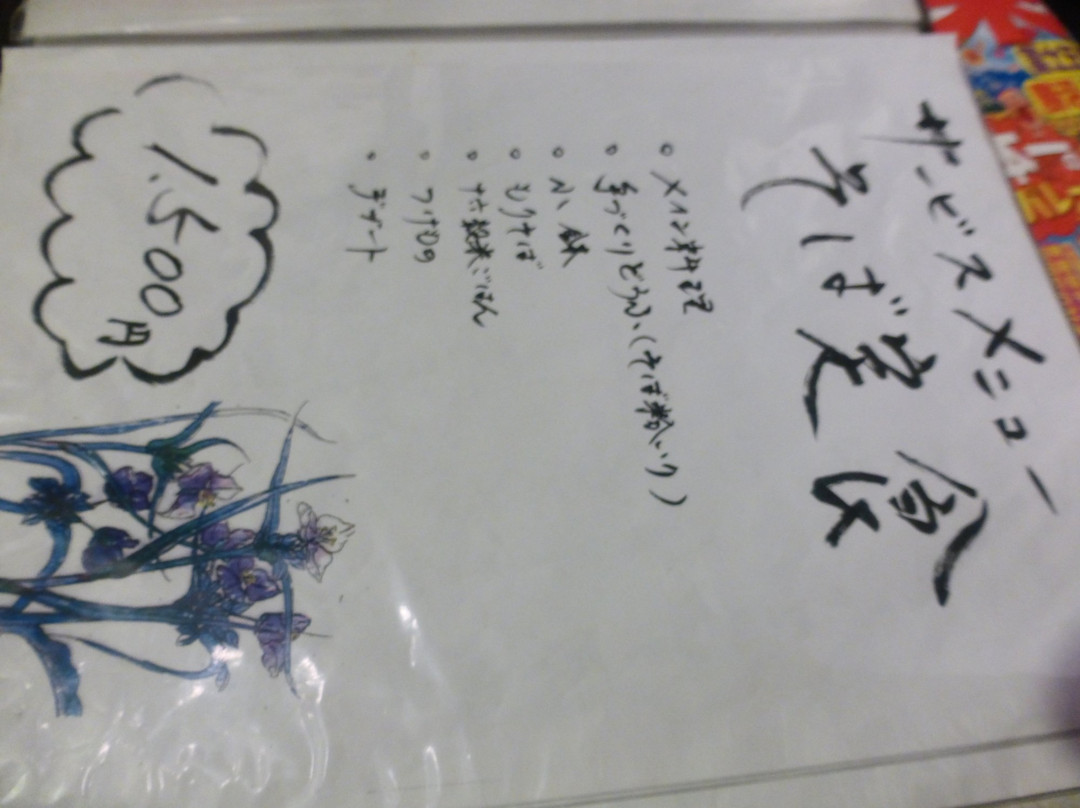 サービスメニュー
そば定食
• メイン料理
• 手づくりどうふ(そば粉いり)
• 小鉢
• もりそば
• 十六穀米ごはん
• つけもの
• デザート
1.500円